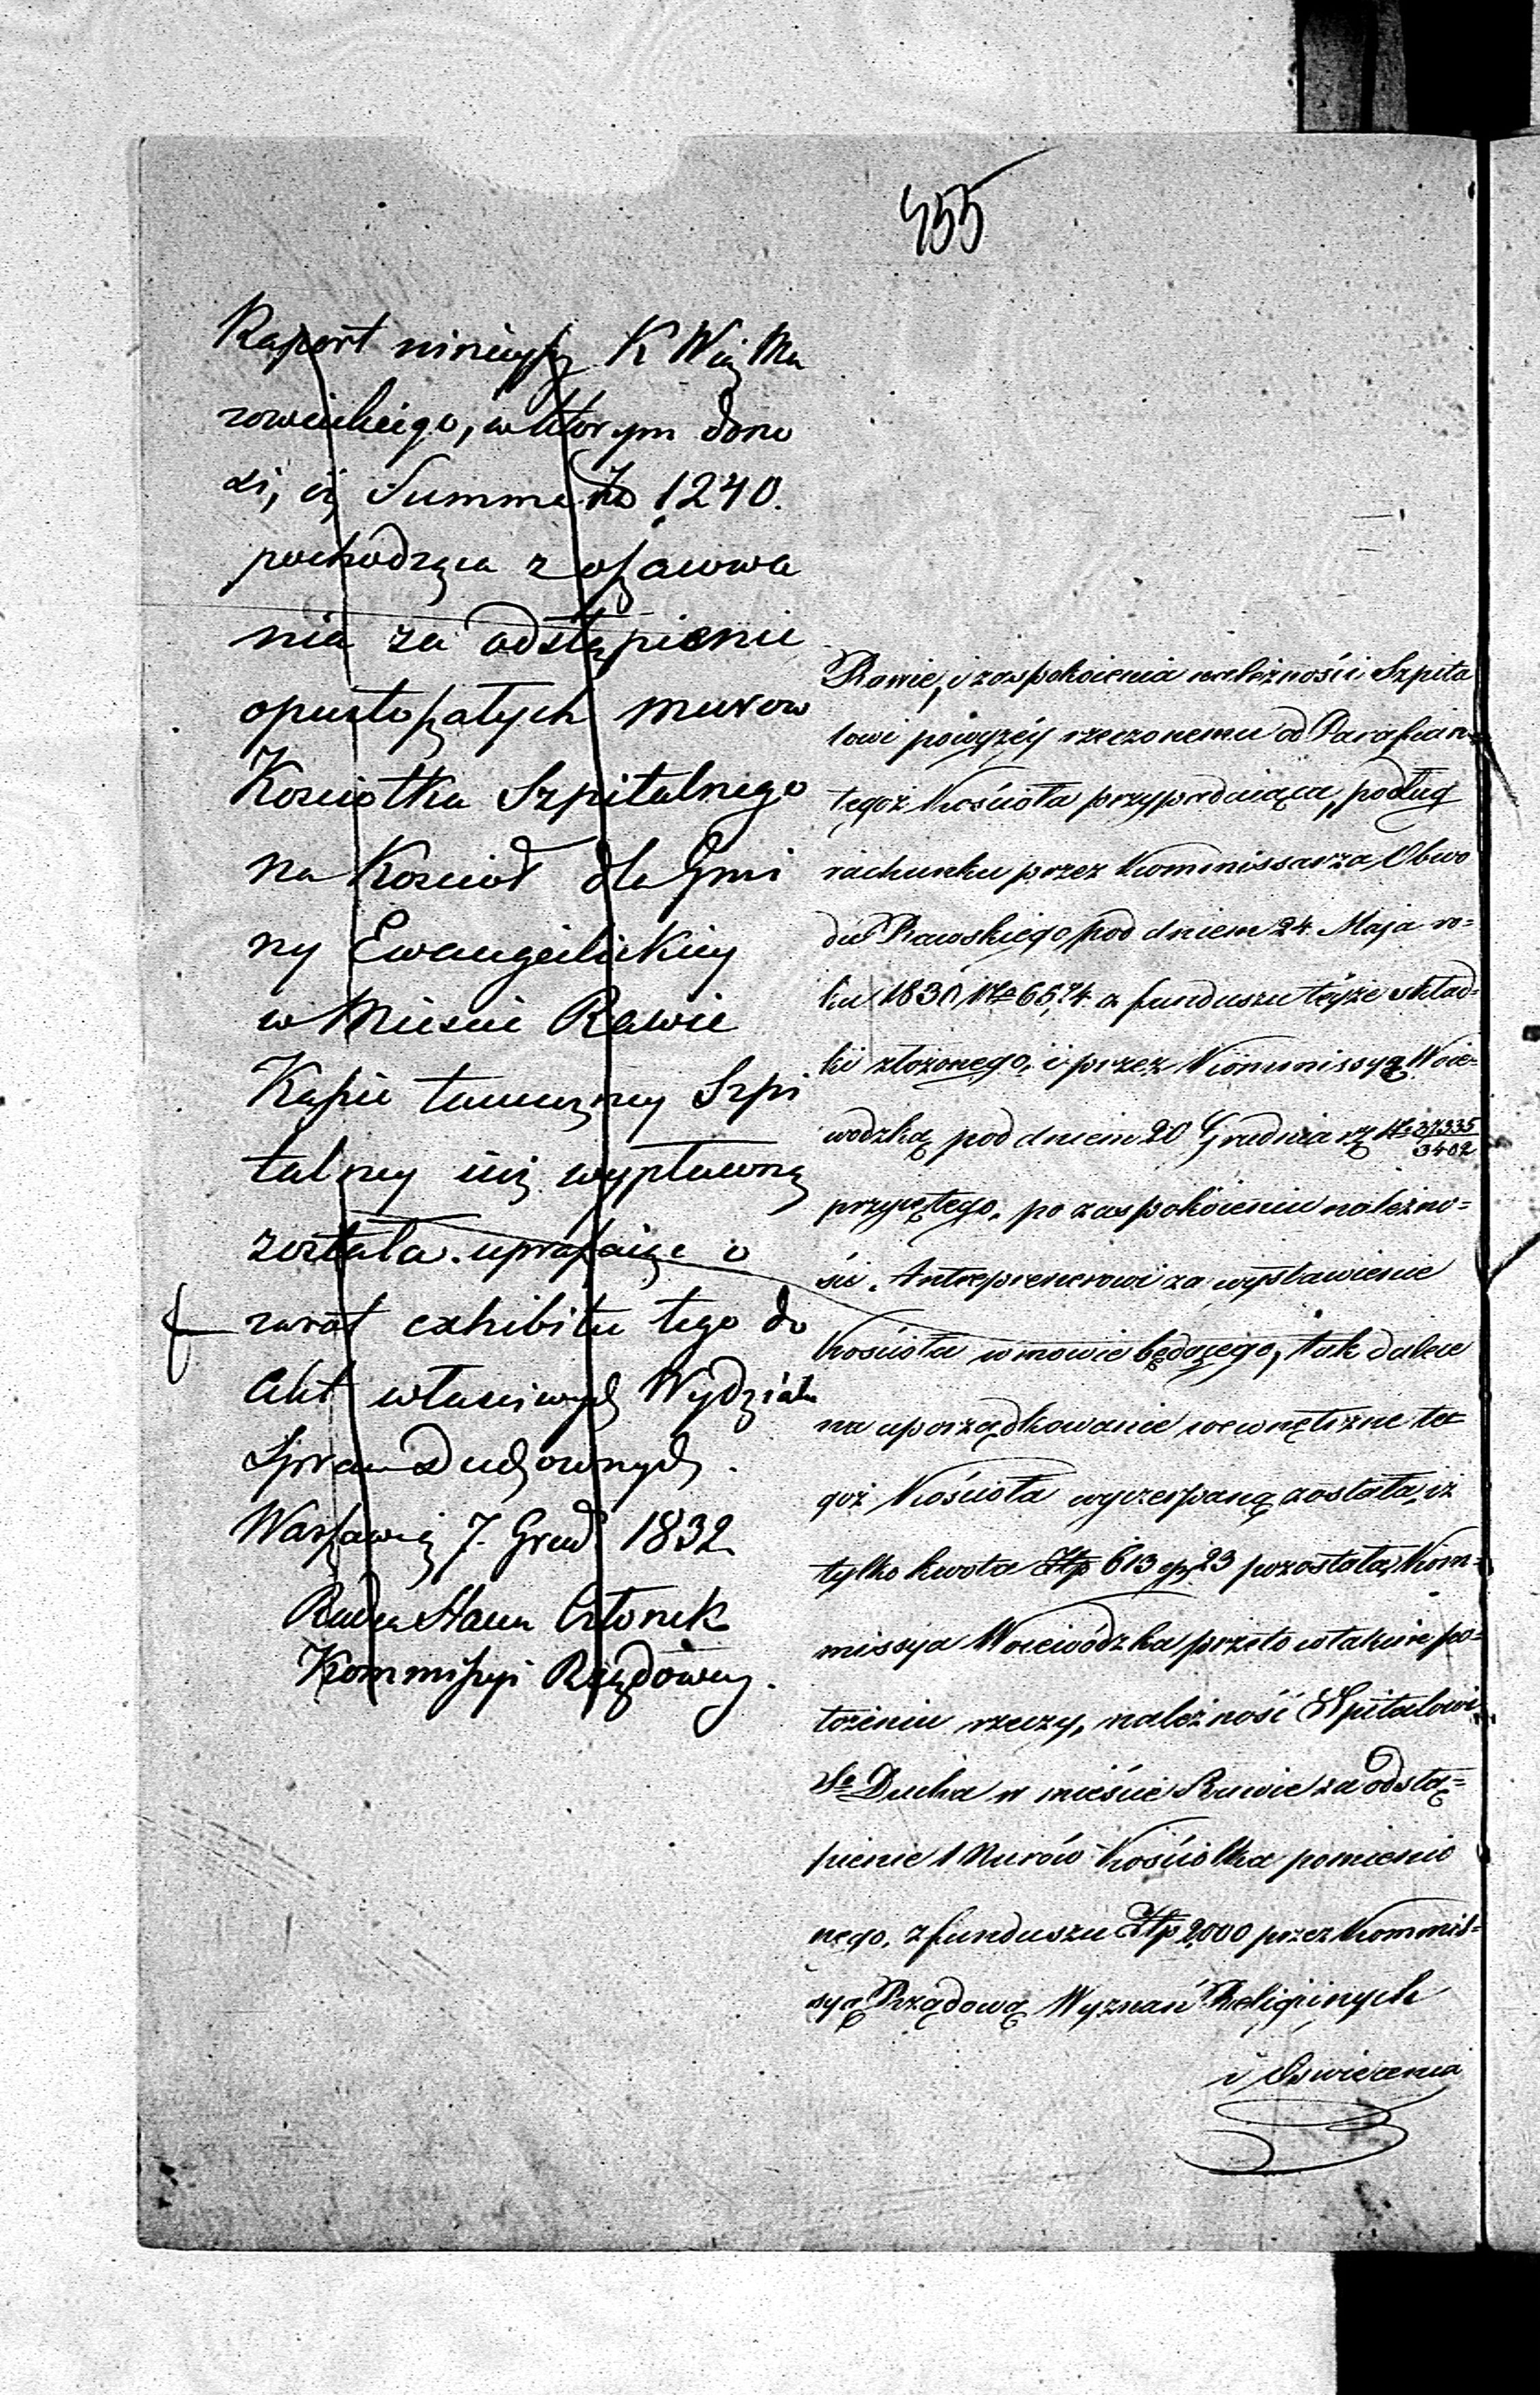 455
Raport niniejszy K Wjz Ma
zowieckiego, w ktorym dono
si, iż Summa Złp 1240.
pochodząca z ofiarowa
nia za odstąpienie
opustoszałych murow
Kosciołka Szpitalnego
na Kosciół dla Gmi
ny Ewangielickiey
w Miescie Rawie
Kassie tameczney Szpi
talney iuż wypłacona
została. upraszaiąc o
zwrot exhibitu tego do
Akt właściwych Wydziału
Spraw Duchownych.
Warszawa 7. Grud. 1832
Radca Stanu Członek
Kommissyi Rządowey.
Rawie, i zaspokoienia należności Szpita
lowi powyżéy rzeczonemu od Parafian
tegoż Kościoła przypadaiąca, podług
rachunku przez Kommissarza Obwo
du Rawskiego pod dniem 24. Maja ro=
ku 1830 No 6574 z funduszu téyże skład=
ki złożonego, i przez Kommissyą Woie=
wodzką pod dniem 20 Grudnia rż No 37335/3402
przyiętego, po zaspokoieniu należno=
ści Antreprenerowi za wystawienie
Kościoła w mowie będącego, tak dalece
na uporządkowanie wewnętrzne te=
goż Kościoła wyczerpaną została, iż
tylko kwota Złp 613 gr 23 pozostała, Kom=
missya Woiewódzka przeto w takim po=
łożeniu rzeczy, należność Szpitalowi
Sgo Ducha w mieście Rawie za odstą=
pienie Murów Kościołka pomienio
nego, z funduszu Złp 2000 przez Kommis=
syą Rządową Wyznań Religiinych
i Oświecenia